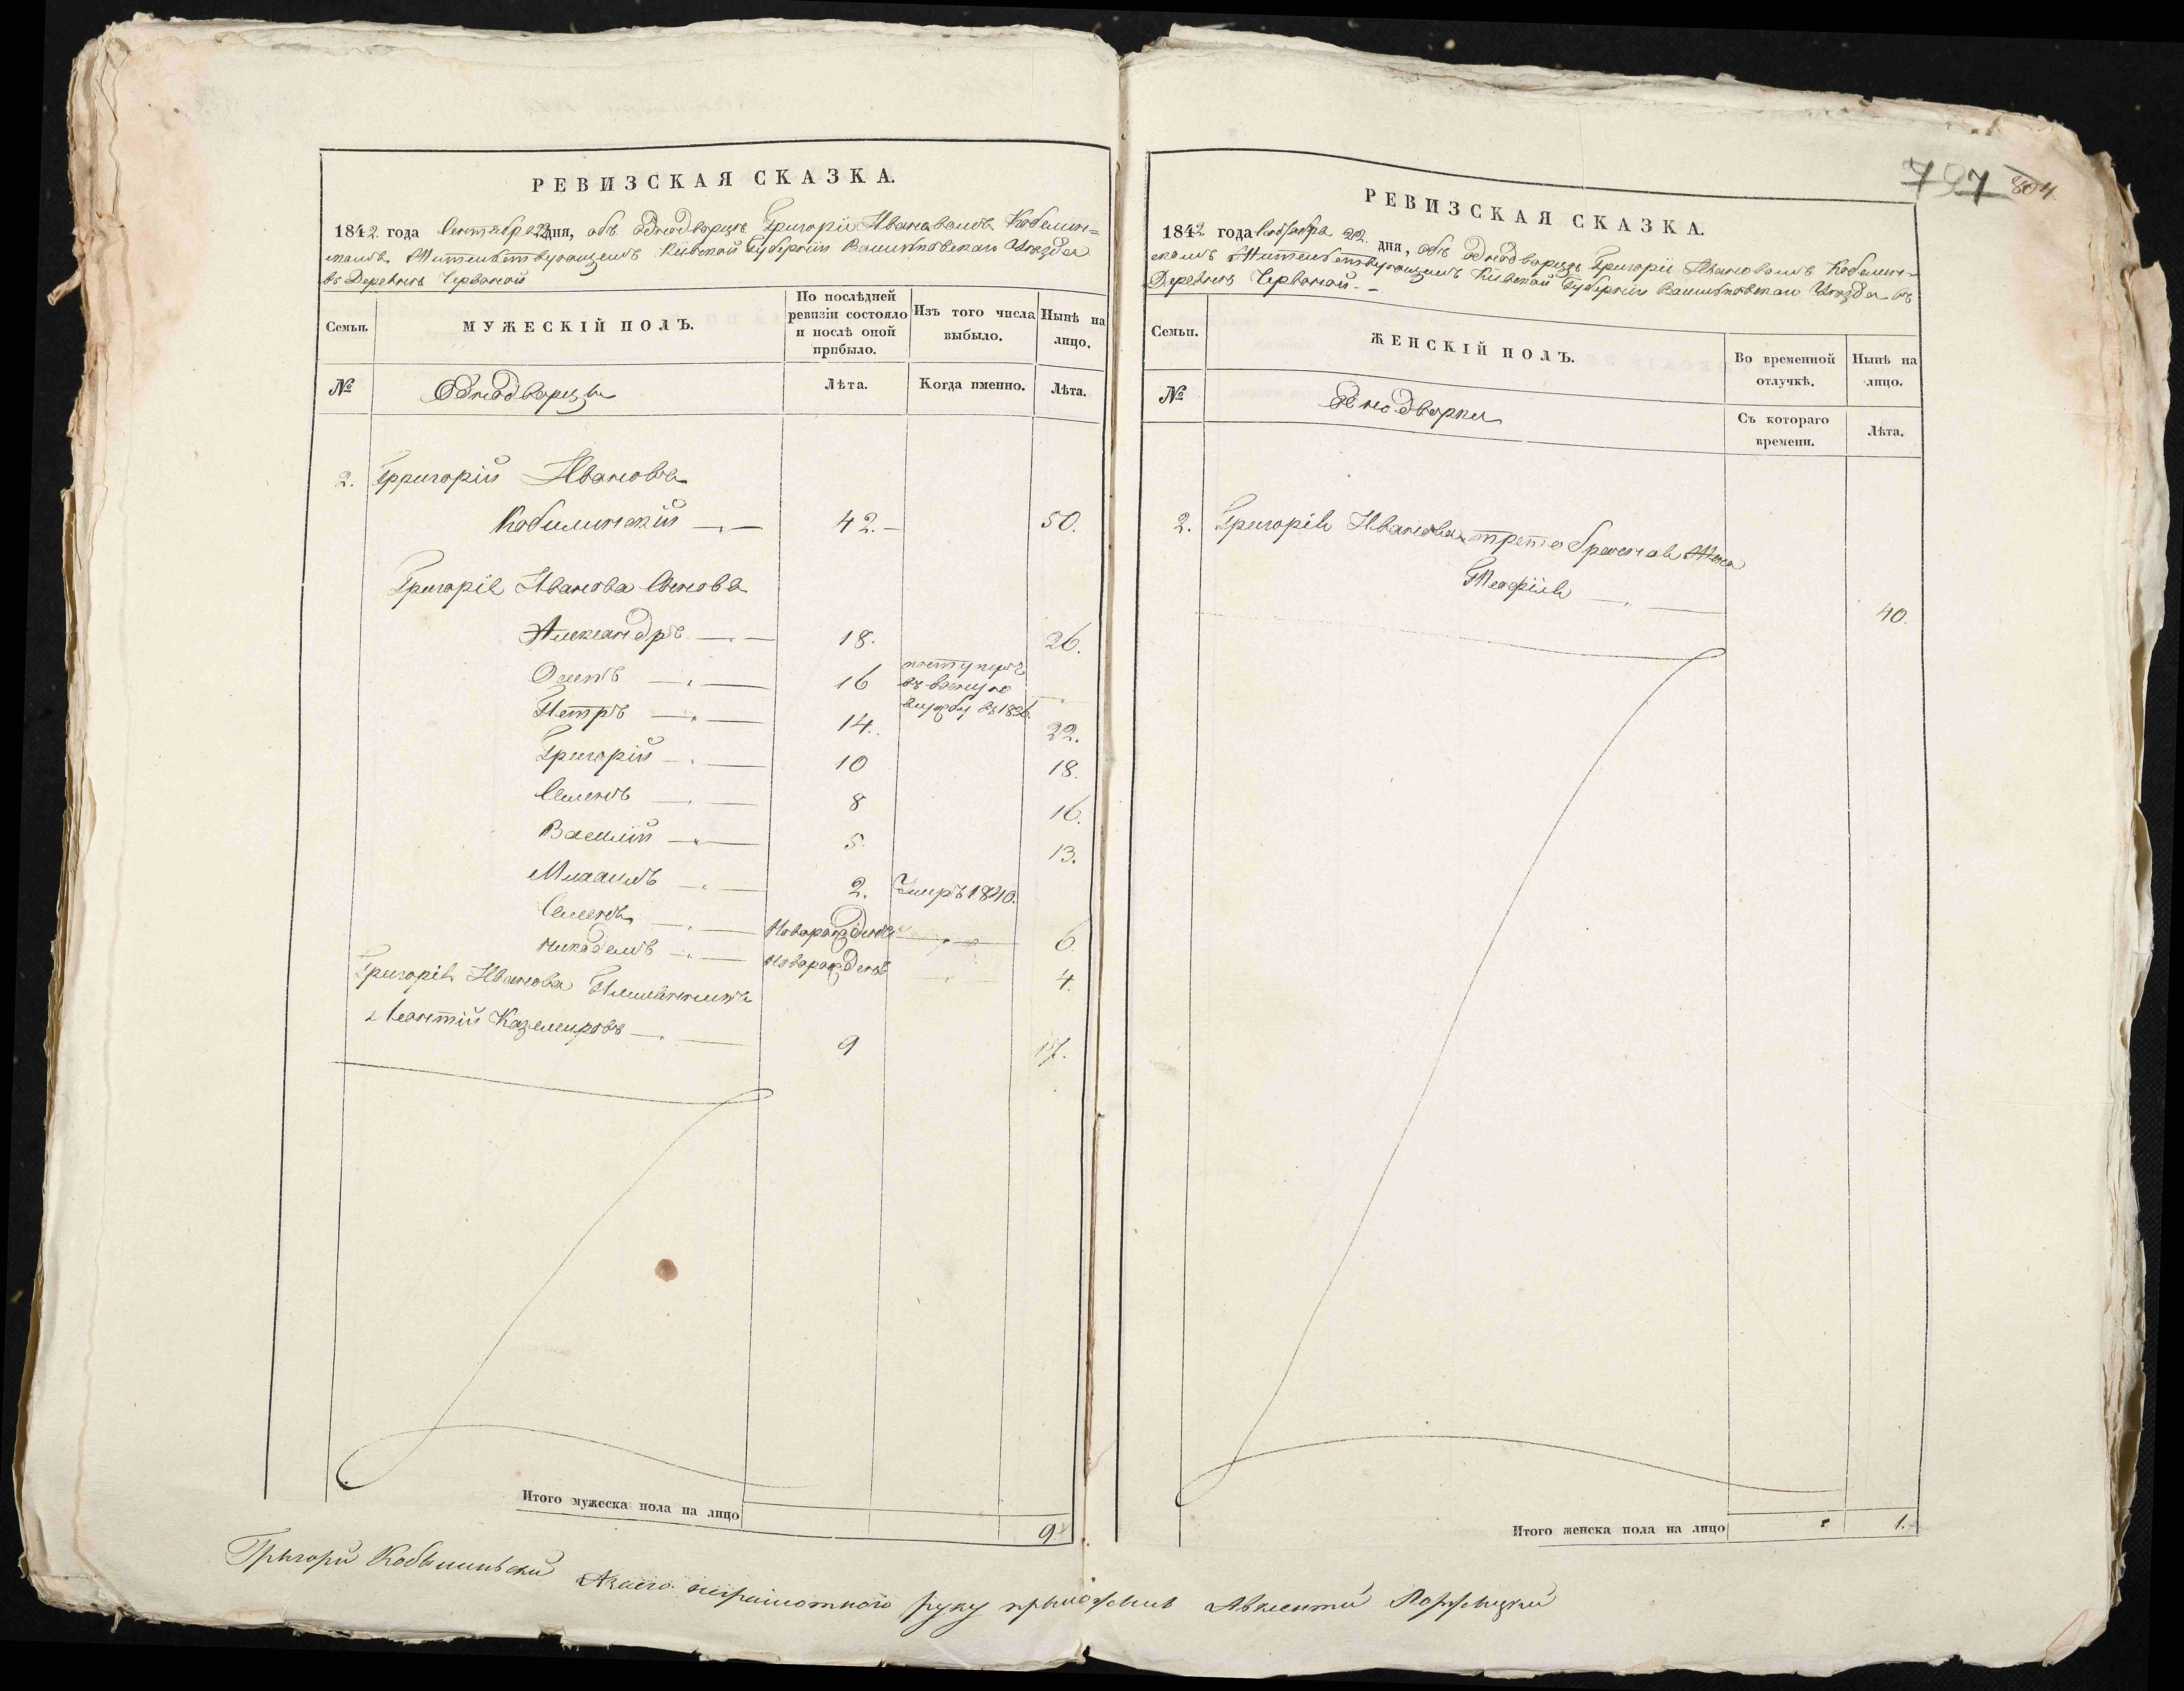 РЕВИЗСКАЯ СКАЗКА.
1842 года Сентября 22 дня, объ однодворцѣ Григоріи Ивановомъ Кобелин=
скомъ, Жительствующемъ Кіевской Губерніи Васильковскаго Уѣзда
въ Деревнѣ Червоной
Семьи.
МУЖЕСКІЙ ПОЛЪ.
По послѣдней
ревизіи состояло
и послѣ оной
прибыло.
Изъ того числа
выбыло.
Нынѣ на
лицо.
№
Однодворцы
Лѣта.
Когда именно.
Лѣта.
2. Григорій Ивановъ
Кобилинскій 42. 50.
Григорія Иванова Сыновья
Александръ 18. 26.
Осипъ 16 поступилъ
въ воєнную
службу въ 1836.
Петръ 14. 22.
Григорій 10 18.
Семенъ 8 16.
Василій 5. 13.
Михаилъ 2. Умеръ 1840.
Семенъ Новорожденъ 6.
Никодемъ Новорожденъ 4.
Григорія Иванова Племянникъ
Леонтій Каземировъ 9 17.
Итого мужеска пола на лицо 9
797 804
РЕВИЗСКАЯ СКАЗКА.
1842 года Сентября 22 дня, объ однодворцѣ Григоріи Ивановомъ Кобелин=
скомъ Жительствующемъ Кіевской Губерніи Васильковскаго Уѣзда въ
Деревнѣ Червоной.
Семьи.
ЖЕНСКІЙ ПОЛЪ.
Во временной
отлучкѣ.
Нынѣ на
лицо.
№
Однодворки
Съ котораго
времени.
Лѣта.
2. Григорія Иванова третобрачная Жена
Теофіля 40.
Итого женска пола на лицо 1.
Григори Кобылиньски А заєго неграмотного руку прыложив